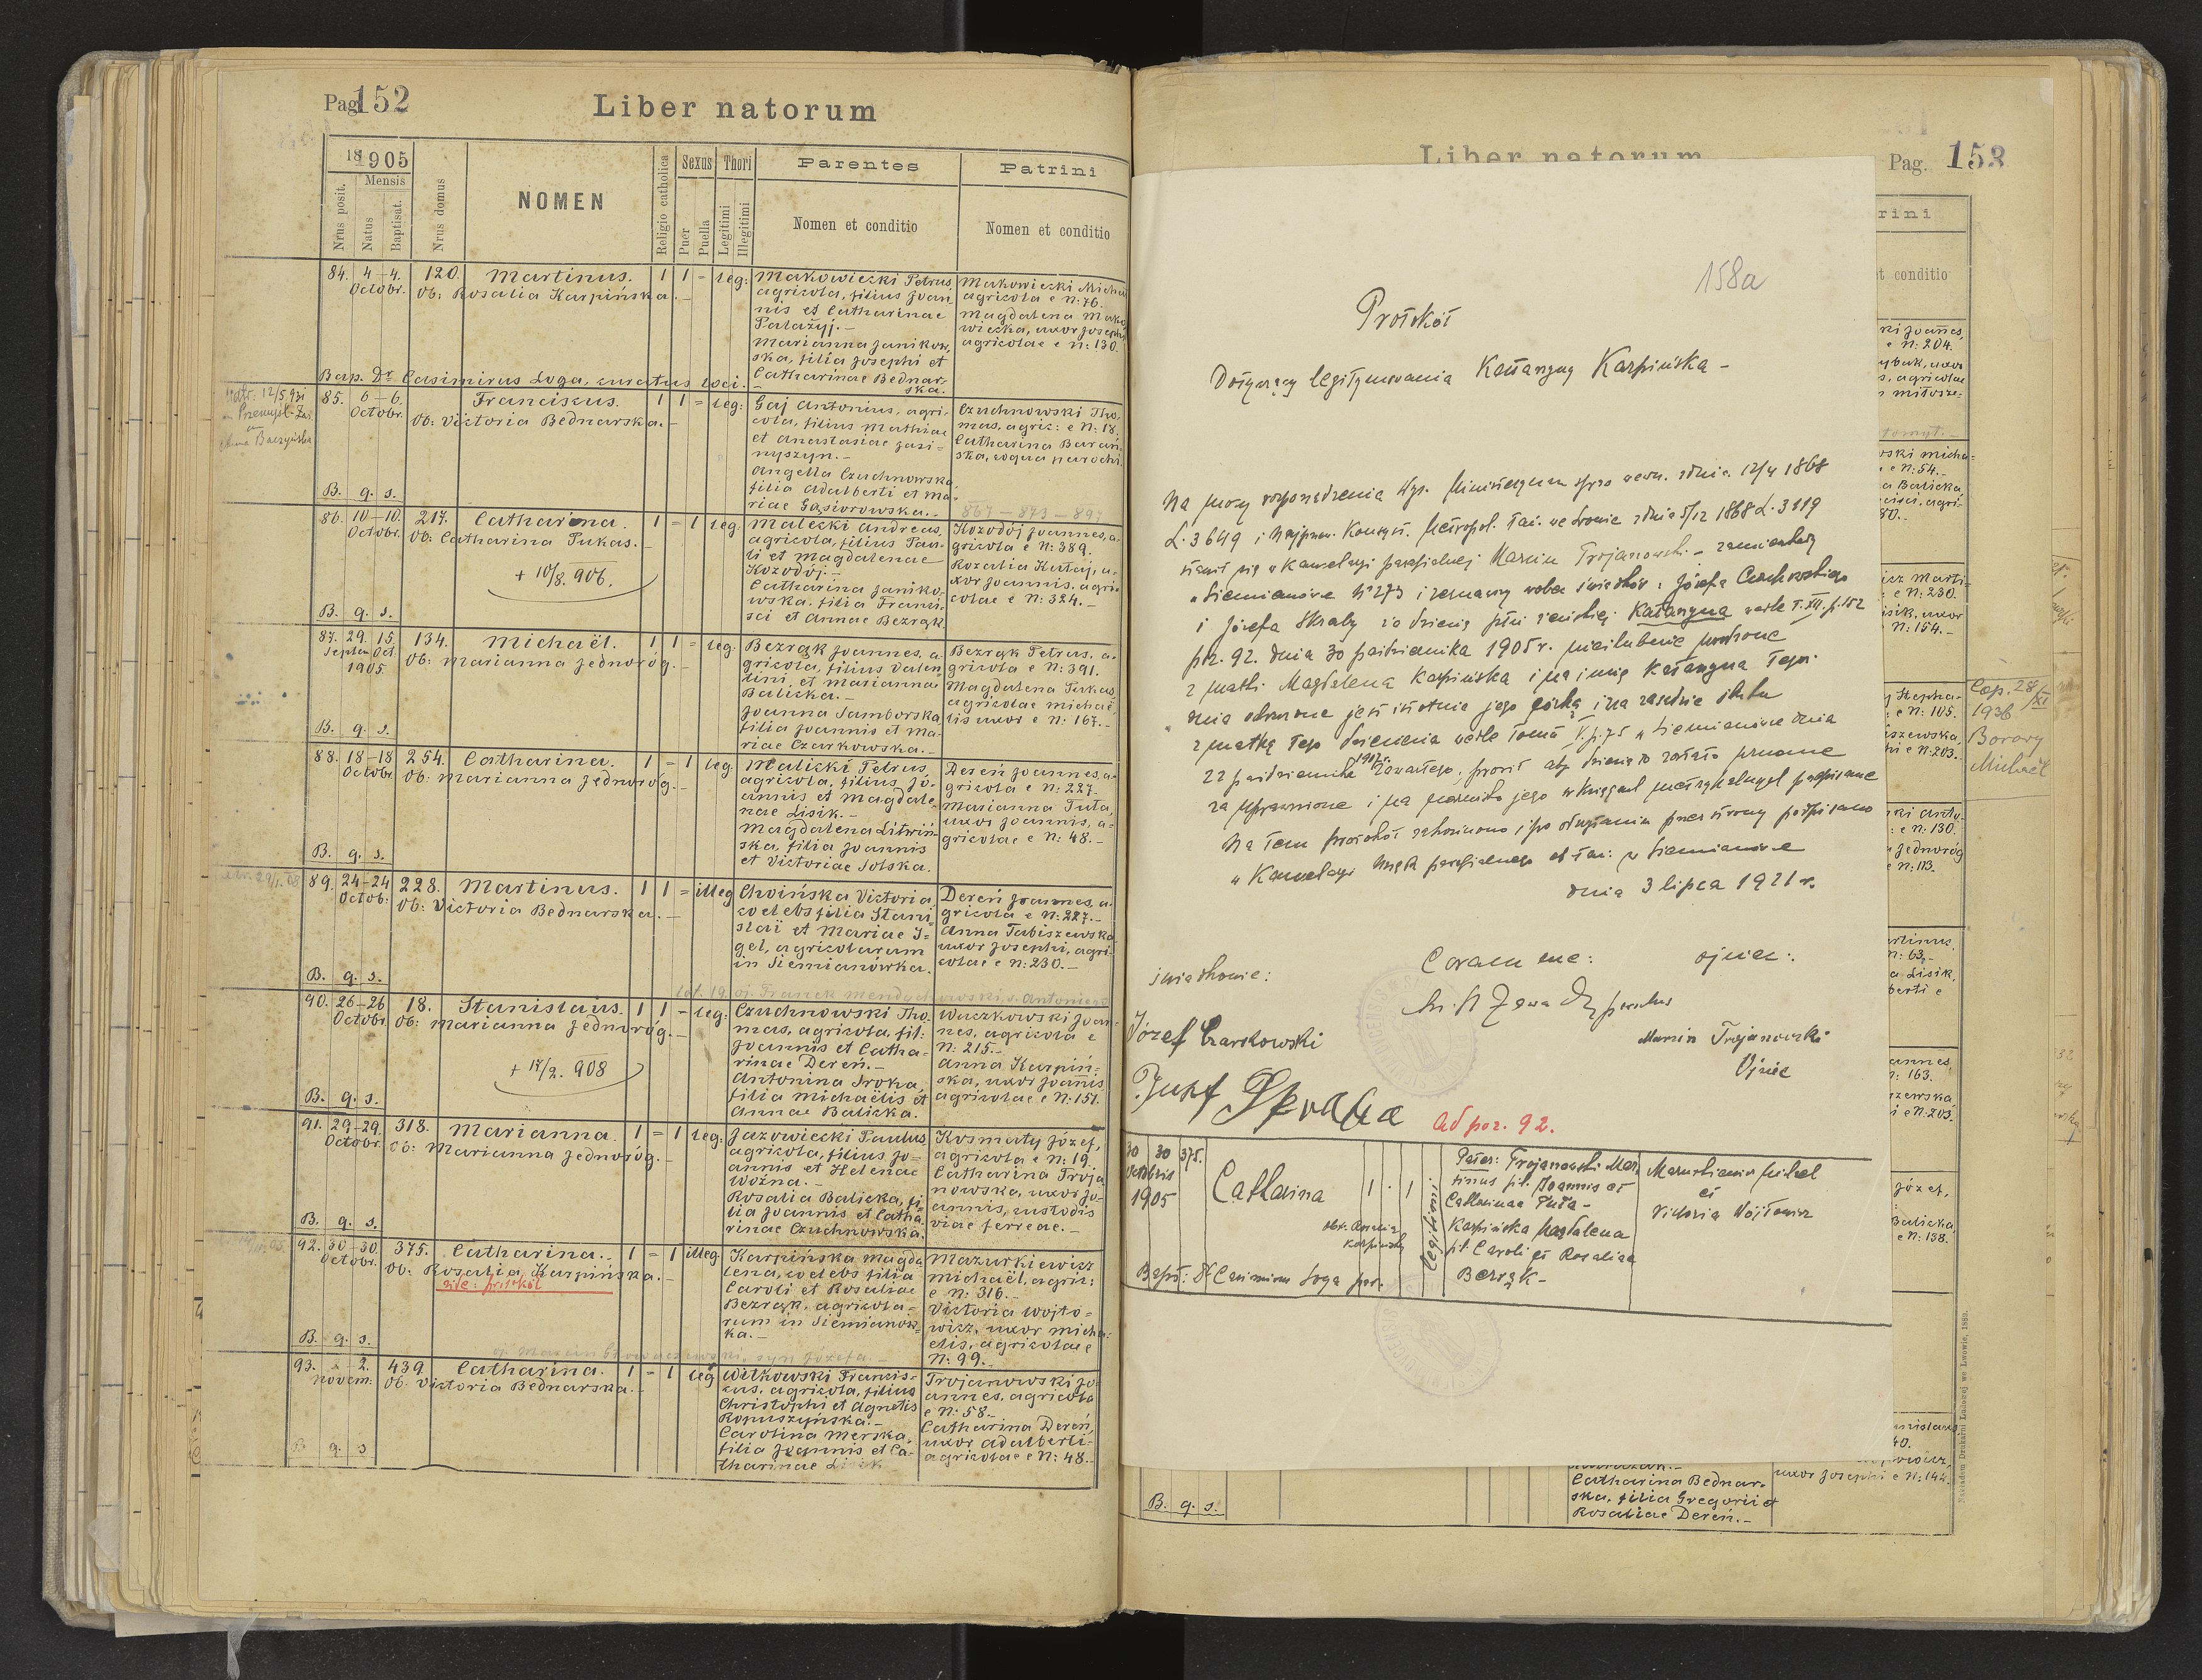 Pag. 152
Liber natorum
18 1905
Mensis
Nrus posit.
Natus
Baptisat.
Nrus domus
NOMEN
Religio catholica
Sexus
Puer
Puella
Thori
Legitimi
Illegitimi
Parentes
Nomen et conditio
Patrini
Nomen et conditio
84. 4-4. Octobr. 120. Martinus. 1 1 = leg:
Ob: Rosalia Karpińska.-
Makowiecki Petrus,
agricola, filius Joan
nis et Catharinae
Patażyj.-
Marianna Janikow,
ska, filia Josephi et
Catharinae Bednar-
ska.
Makowiecki Micha
agricola e N: 76.
Magdalena Mako
wiecka, uxor Josephi
agricolae e N: 130.
Bap. Dr Casimirus Loga, curatus loci.
12/5 931
Przemyśl-Zas.
85. 6-6. Octobr. Franciscus. 1 1 = leg:
Ob: Victoria Bednarska.-
Gaj Antonius, agri-
cola, filius Mathiae
et Anastasiae Jasi-
nyszyn.-
Angella Czuchnowska,
filia Adalberti et Ma-
riae Gąsiorowska.-
Czuchnowski Tho,
mas, agric: e N: 18.
Catharina Barań-
ska, coqua parochi.
867-873-897
B. q. s.
86. 10-10. Octobr. 217. Catharina. 1 = 1 leg:
Ob: Catharina Pukas.-
+ 10/8. 906.
Malecki Andreas,
agricola, filius Pau-
li et Magdalenae
Kozodój.-
Catharina Janiko-
wska, filia Franci-
sci et Annae Bezrąk
Kozodój Joannes, a-
gricola e N: 389.
Rozalia Kutaj, u-
xor Joannis, agri-
colae e N: 324.-
B. q. s.
87. 29. 15. Septem Oct. 1905. 134. Michaël. 1 1 = leg:
Ob: Marianna Jednoróg.-
Bezrąk Joannes, a-
gricola, filius Valen
tini, et Mariannae
Balicka.-
Joanna Samborska,
filia Joannis et Ma-
riae Czarkowska.-
Bezrąk Petrus, a-
gricola e N: 391.
Magdalena Pukas,
agricolae Michaë-
lis uxor e N: 167.-
B. q. s.
88. 18-18 Octobr. 254. Catharina. 1 = 1 leg:
Ob: Marianna Jednoróg.-
Malicki Petrus
agricola, filius Jo-
annis et Magdale-
nae Lisik.-
Magdalena Litwiń-
ska, filia Joannis
et Victoriae Solska.
Dereń Joannes, a-
gricola e N: 227.-
Marianna Tuta,
uxor Joannis, a-
gricolae e N: 48.-
B. q. s.
89. 24-24 Octob: 228. Martinus. 1 1 = illeg
Ob: Victoria Bednarska.-
Chwińska Victoria
coelebs filia Stani-
slai et Mariae I-
gel, agricolarum
in Siemianówka.
Dereń Joannes, a-
gricola e N: 227.-
Anna Tabiszewska,
uxor Josephi, agri-
colae e N: 230.-
B. q. s.
90. 26-26 Octobr 18. Stanislaus. 1 1 - leg:
Ob: Marianna Jednoróg.-
+ 17/2. 908
Czuchnowski Tho-
mas, agricola, fil:
Joannis et Catha-
rinae Dereń.-
Antonina Sroka,
filia Michaëlis et
Annae Balicka.
Waczkowski Joan-
nes, agricola e
N: 215.-
Anna Karpiń-
ska, uxor Joannis
agricolae e N: 151.
B. q. s.
91. 29-29. Octobr. 318. Marianna. 1 = 1 leg:
Ob: Marianna Jednoróg.-
Jazowiecki Paulus,
agricola, filius Jo-
annis et Helenae
Woźna.-
Rosalia Balicka, fi-
lia Joannis et Catha
rinae Czuchnowska.
Kosmaty Józef,
agricola e N: 19.
Catharina Troja
nowska, uxor Jo-
annis, custodis
viae ferreae.-
B. q. s.
92. 30-30. Octobr. 375. Catharina.- 1 = 1 illeg.
Ob: Rosalia Karpińska.-
vide: protokół
Karpińska Magda
lena, coelebs filia
Caroli et Rosaliae
Bezrąk, agricola-
rum in Siemianów-
ka.-
Mazurkiewicz
Michaël, agric:
e N: 316.-
Victoria Wojto-
wicz, uxor Micha-
elis, agricolae e
N: 99.-
B. q. s.
93. 2. Novem: 439. Catharina. 1 - 1 leg
Ob. Victoria Bednarska.-
Witkowski Francis-
cus, agricola, filius
Christophi et Agnetis
Kopuszyńska.-
Carolina Merska,
filia Joannis et Ca-
tharinae Lisik
Trojanowski Jo-
annes, agricola
e N: 58.-
Catharina Dereń,
uxor Adalberti-
agricolae e N: 48.-
B. q. s
Liber natorum
Pag. 153
158a
Protokół
Dotyczący legitymowania Katarzyny Karpińska -
Na mocy rozporządzenia Wys. Ministeryum spraw wewn. z dnia 12/4 1868
L. 3649 i Najprzew. Konsyst. Metropol. łać. we Lwowie z dnia 5/12 1868 L. 3119
stawił się w Kancelaryi parafialnej Marcin Trojanowski - zamieszkały
w Siemianówce N 273 i zeznawszy wobec świadków: Józefa Czarkowskiego
i Józefa Skraby że dziecię płci żeńskiej Katarzyna wedle T. XII. p. 152
poz. 92. dnia 30 października 1905 r. nieślubnie urodzone
z matki Magdalena Karpińska i na imię Katarzyna tego
dnia ochrzczone jest istotnie jego córką i na zasadzie ślubu
z matką tego dziecięcia wedle Toma V. p. 75 w Siemianówce dnia
22 października 1912 r. zawartego, prosił aby dziecię to zostało uznane
za uprawnione i na nazwisko jego w księgach metrykalnych zapisane
Na tem protokół zakończono i po odczytaniu przez strony podpisano
w Kancelaryi Urzędu parafialnego ob. łać: w Siemianówce
dnia 3 lipca 1921 r.
świadkowie:
Coram me:
ojciec:
Józef Czarkowski
Marcin Trojanowski
Ojciec
Juzef Skraba
Ad poz. 92.
30 30 Octobris 1905
375.
Catharina
1 . 1
legitimi
obs. Rosalia
Karpińska
Pater: Trojanowski Mar
tinus fil. Joannis et
Catharinae Puta-
Karpińska Magdalena
fil. Caroli et Rosaliae
Bezrąk-
Mazurkiewicz Michael
et
Victoria Wójtowicz
Bapt: Dr Casimirus Loga par.
rini
t conditio
ski Joannes,
e N: 204.
Cop. 28/XI
1936
Borowy
Michaël
Catharina Bednar-
ska, filia Gregorii et
Rosaliae Dereń.-
uxor Josephi e N: 144.
B. q. s.
Nakładem Drukarni Ludowej we Lwowie, 1889.